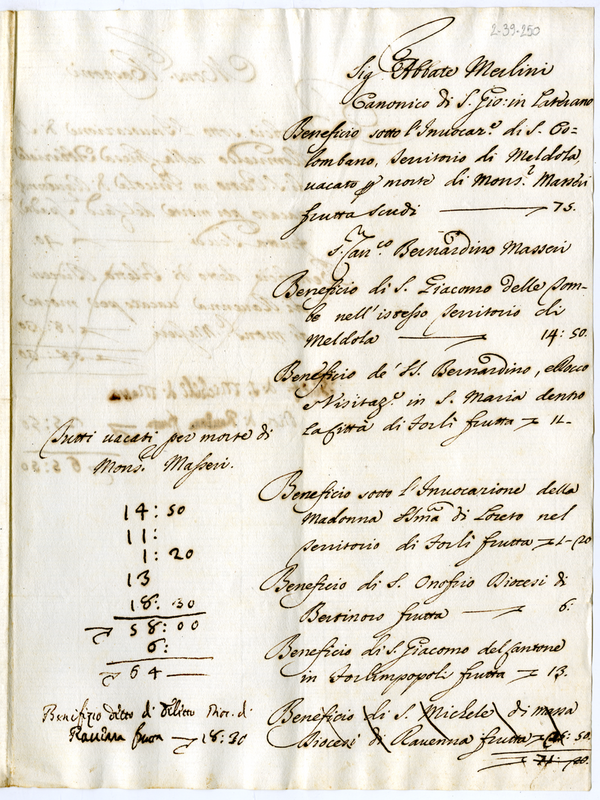 2-39-250
Sig.r Abbate Merlini
Canonico di S. Gio: in Laterano
Beneficio sotto l'Invocaz.e di S. Co=
lombano, Territorio di Meldola,
vacato p morte di Mons.r Masseri
frutta scudi 75.
S. Can.co Bernardino Masseri
Beneficio di S. Giacomo delle Tom-
be nell'istesso Territorio di
Meldola 14: 50.
Beneficio de' SS. Bernardino, e Rocco
e Visitaz.e in S. Maria dentro
la Città di Forlì frutta 11-
Tutti vacati per morte di
Mons.r Masseri.
Beneficio sotto l'Invocazione della
Madonna SSma di Loreto nel
Territorio di Forlì frutta 1-20
Beneficio di S. Onofrio Diocesi di
Bertinoro frutta 6:
Beneficio di S. Giacomo del Cantone
in Forlimpopoli frutta 13.
Beneficio di S. Michele di massa
Diocesi di Ravenna frutta 50.
14: 50
11:
1: 20
13
18: 30
58: 00
6:
64
Benifizio detto di Dioc. di
Ravenna frutta 18: 30